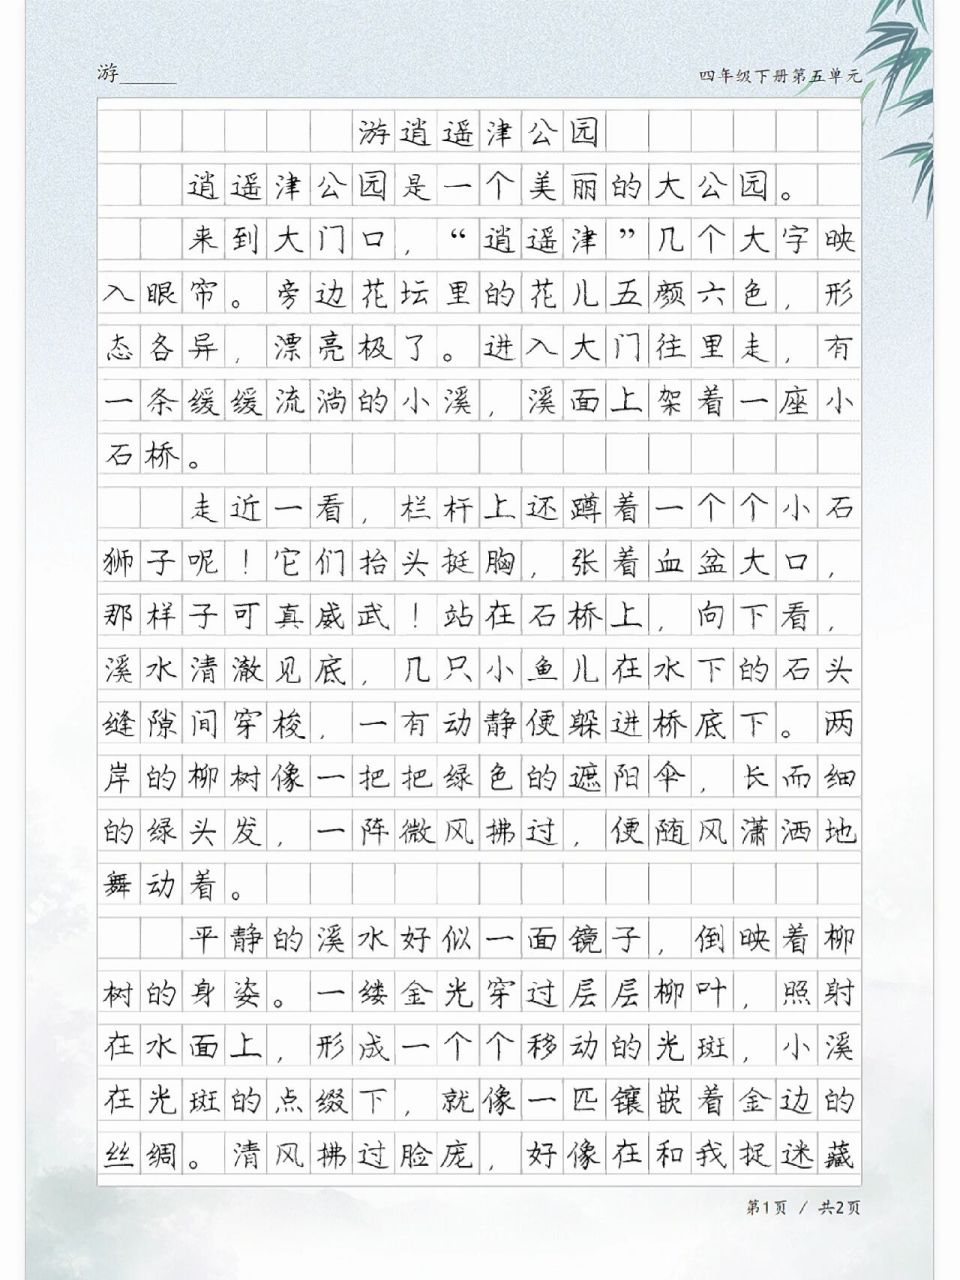 游_____
四年级下册第五单元
游逍遥津公园
逍遥津公园是一个美丽的大公园。
来到大门口，“逍遥津”几个大字映
入眼帘。旁边花坛里的花儿五颜六色，形
态各异，漂亮极了。进入大门往里走，有
一条缓缓流淌的小溪，溪面上架着一座小
石桥。
走近一看，栏杆上还蹲着一个个小石
狮子呢！它们抬头挺胸，张着血盆大口，
那样子可真威武！站在石桥上，向下看，
溪水清澈见底，几只小鱼儿在水下的石头
缝隙间穿梭，一有动静便躲进桥底下。两
岸的柳树像一把把绿色的遮阳伞，长而细
的绿头发，一阵微风拂过，便随风潇洒地
舞动着。
平静的溪水好似一面镜子，倒映着柳
树的身姿。一缕金光穿过层层柳叶，照射
在水面上，形成一个个移动的光斑，小溪
在光斑的点缀下，就像一匹镶嵌着金边的
丝绸。清风拂过脸庞，好像在和我捉迷藏
第1页 / 共2页